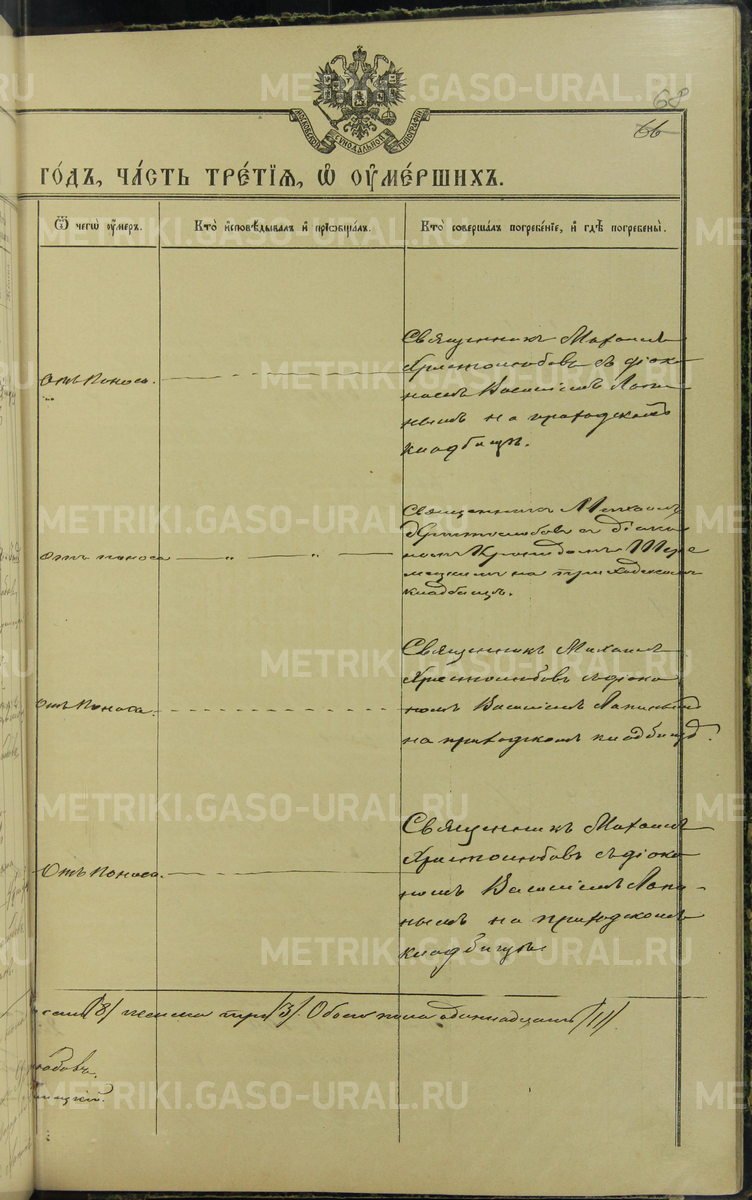 METRIKI.GASO-URAL.RU
68
66
МОСКОВСКОЙ СѴНОДАЛЬНОЙ ТИПОГРАФІИ
го́дъ, ча́сть тре́тїѧ, ѡ҆ оу҆ме́ршихъ.
Ѿ чегѡ̀ оу҆́меръ.
Кто̀ и҆сповѣ́дывалъ и҆ прїѡбща́лъ.
Кто̀ соверша́лъ погребе́нїе, и҆ гдѣ̀ погребены̀.
Отъ поноса.
Священникъ Михаилъ
Христолюбовъ съ діако
номъ Василіемъ Лапи
нымъ на приходскомъ
кладбищѣ.
Отъ поноса
Священникъ Михаилъ
Христолюбовъ съ діако
номъ Кронидомъ Шере
мецкимъ на приходскомъ
кладбищѣ.
Отъ поноса.
Священникъ Михаилъ
Христолюбовъ съ діако
номъ Василіемъ Лапинымъ
на приходскомъ кладбищѣ.
Отъ поноса.
Священникъ Михаилъ
Христолюбовъ съ діако
номъ Василіемъ Лапи-
нымъ на приходскомъ
кладбищѣ
/8/ женска три /3/. Обоего пола одиннадцать /11/
любовъ.
мецкій.